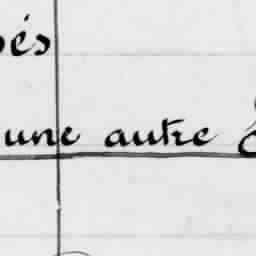 une autre